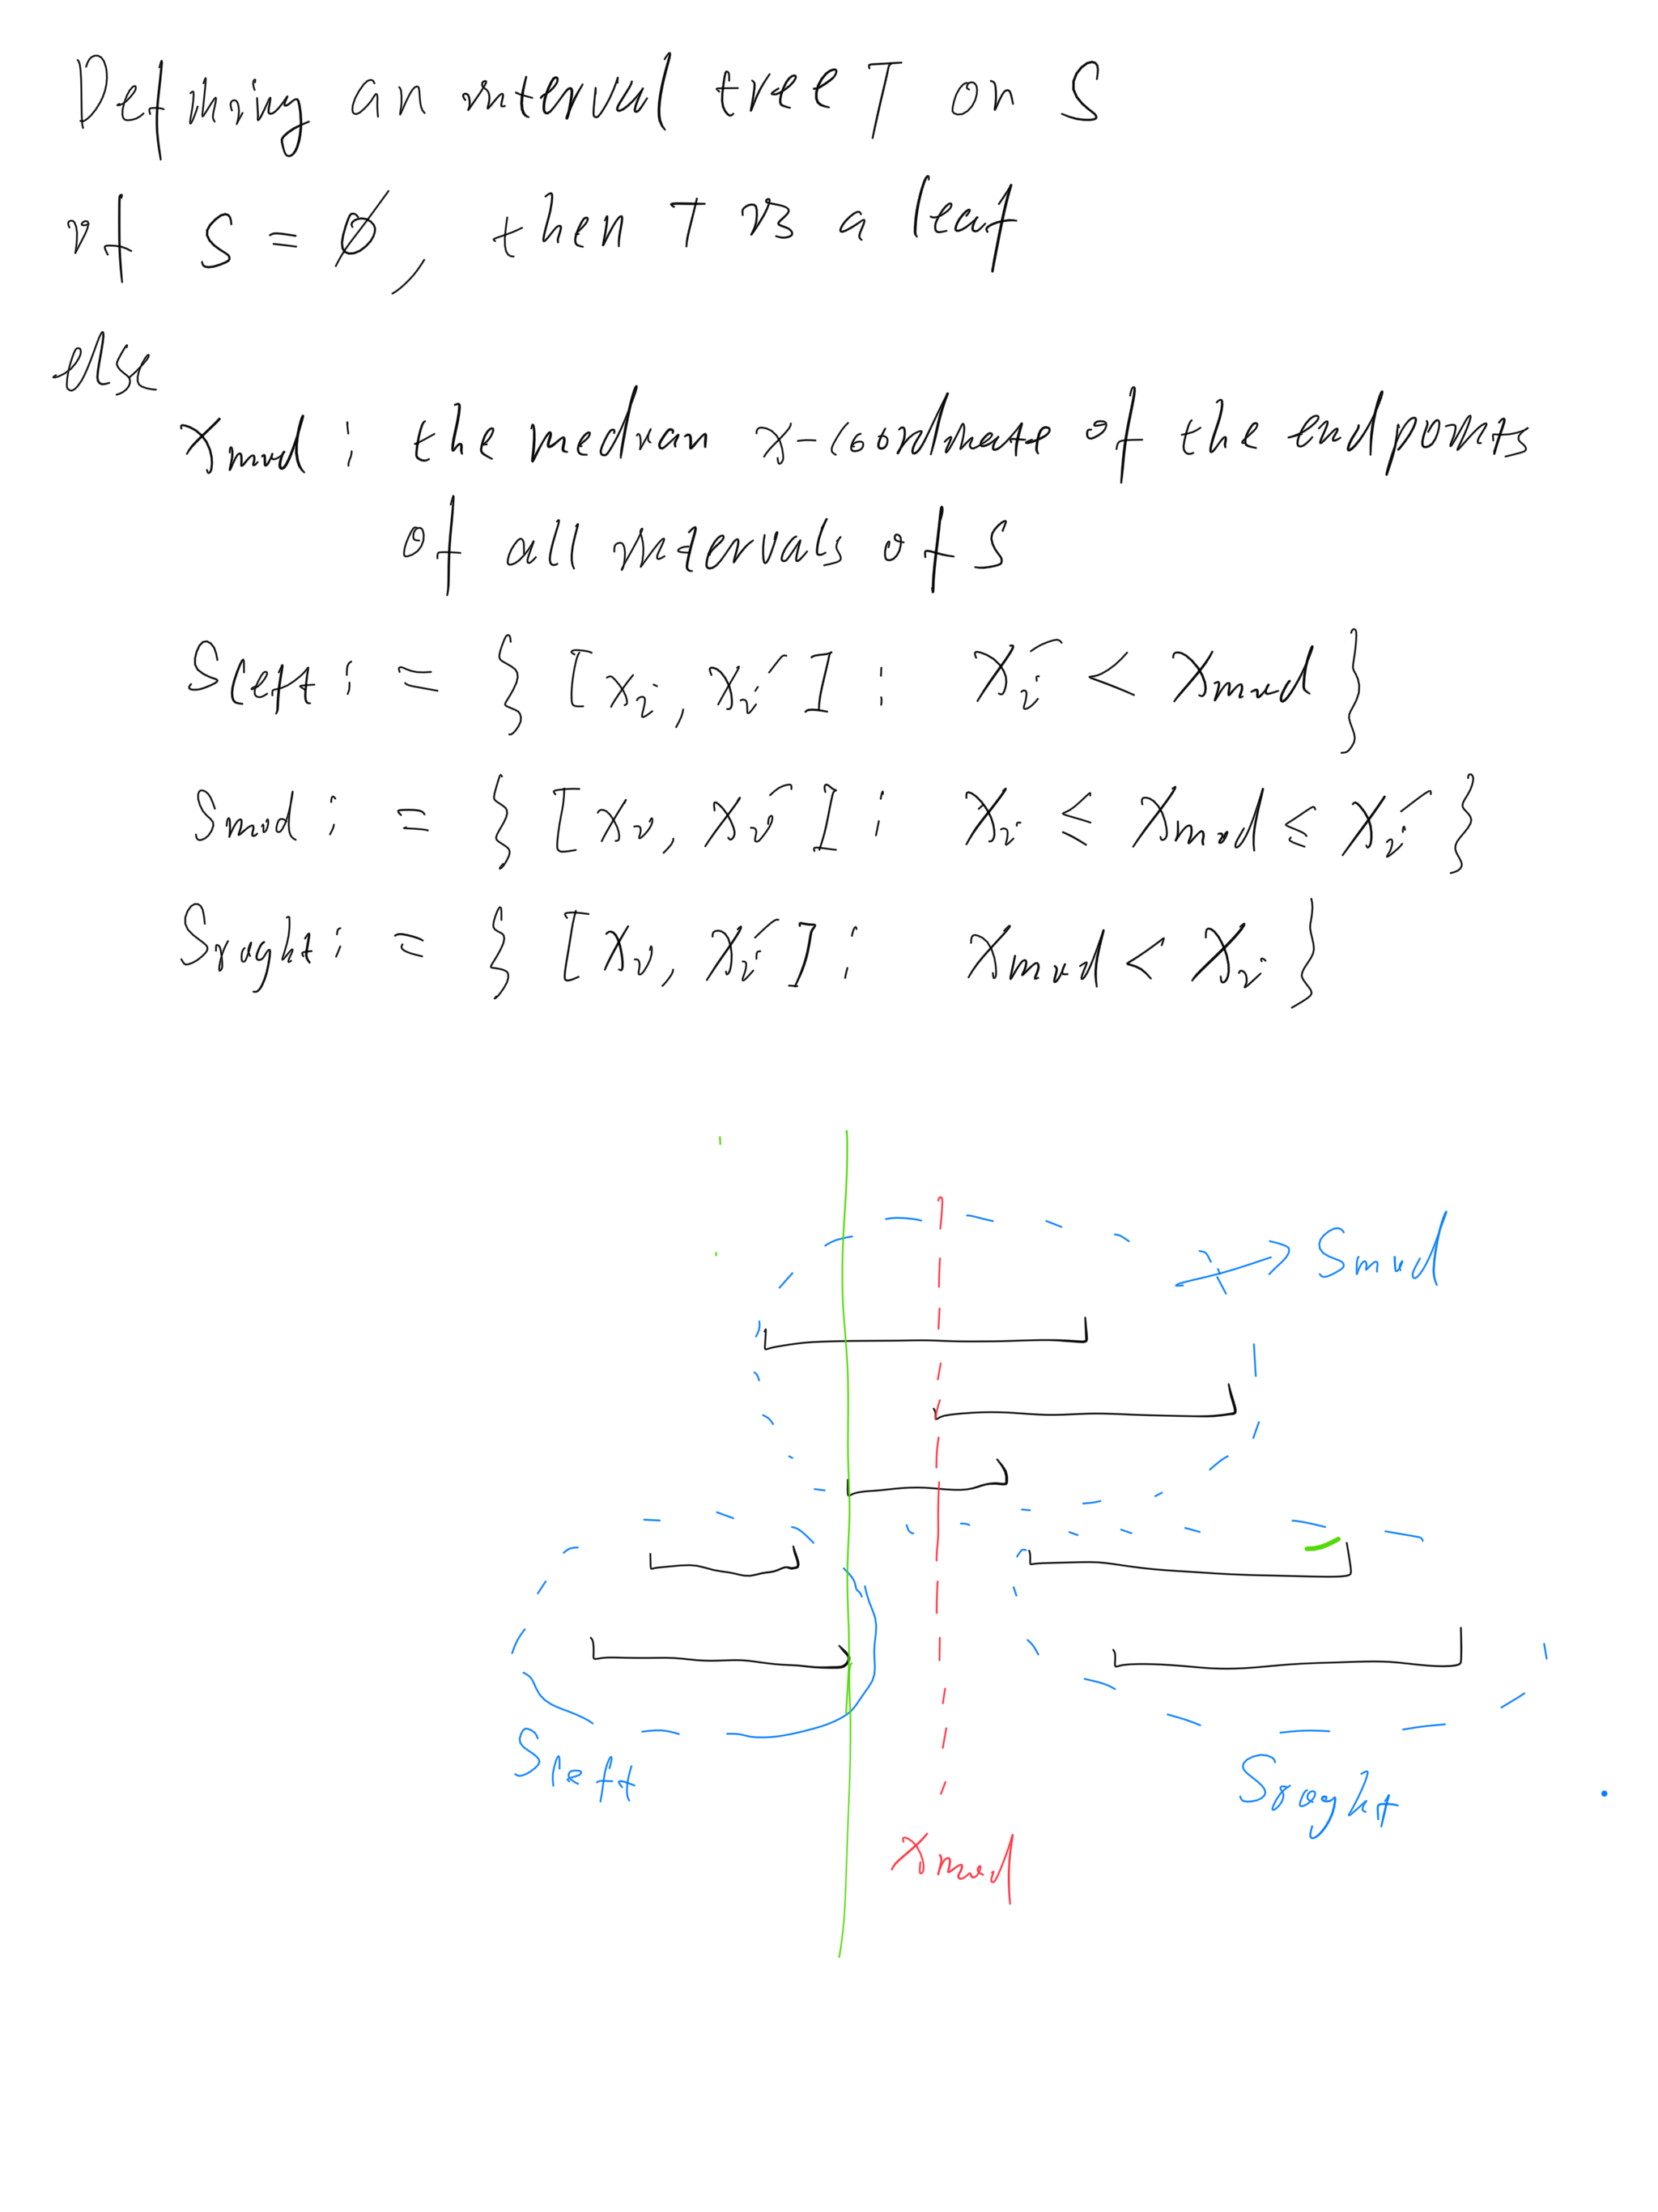 Defining an interval tree T on S
if S = ∅, then T is a leaf
else
xmid : the median x-coordinate of the endpoints
of all intervals of S
Sleft : = { [xi, xi'] : xi' < xmid }
Smid : = { [xi, xi'] : xi ≤ xmid ≤ xi' }
Sright : = { [xi, xi'] : xmid < xi }
Smid
Sleft
Sright
xmid